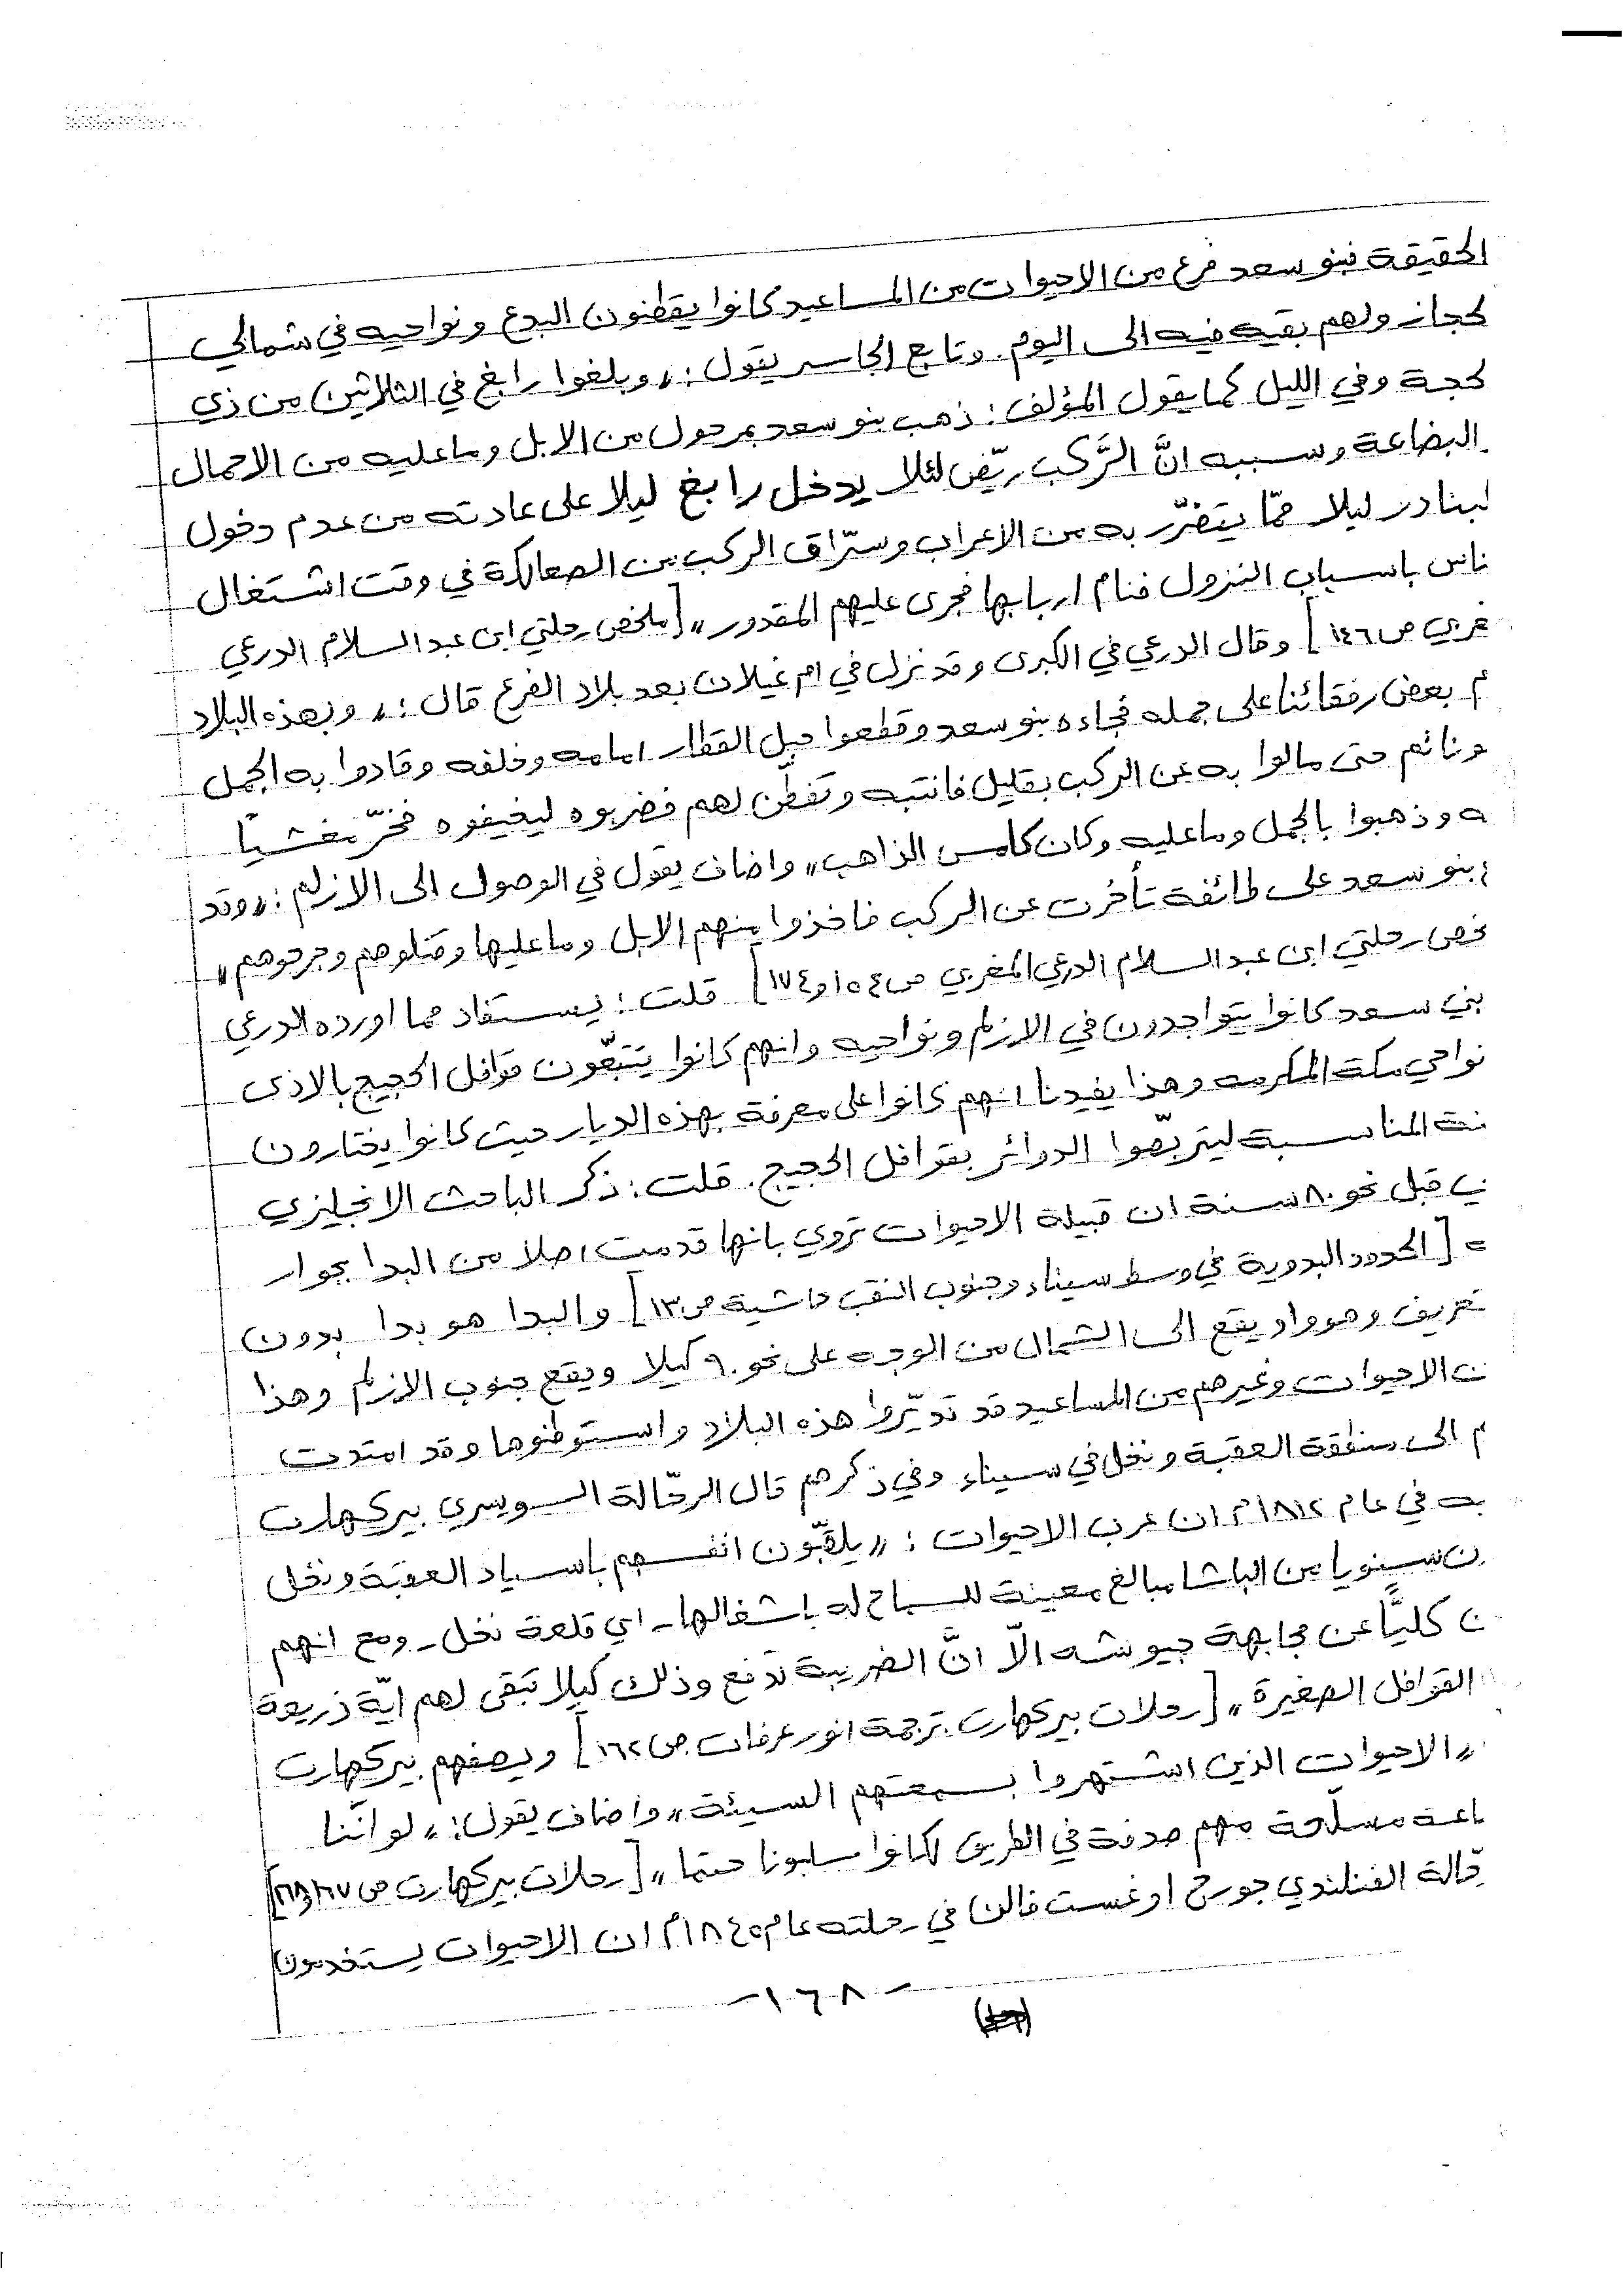 الحقيقة فبنو سعد فرع من الاحيوات من المساعيد كانوا يقطنون البدع ونواحيه في شمالي
لحجاز ولهم بقيه فيه الى اليوم. وتابع الجاسر يقول: "وبلغوا رابغ في الثلاثين من ذي
لحجة وفي الليل كما يقول المؤلف: ذهب بنو سعد بمرحول من الابل وما عليه من الاحمال
البضاعة وسببه انَّ الرَّكب ريّض لئلا يدخل رابغ ليلا على عادته من عدم دخول
لبنادر ليلا ممّا يتضرّر به من الاعراب وسرّاق الركب من الصعاليكة في وقت اشتغال
ناس باسباب النزول فنام اربابها فجرى عليهم المقدور" [ملخص رحلتي ابن عبد السلام الدرعي
غربي ص١٤٦] وقال الدرعي في الكبرى وقد نزل في ام غيلان بعد بلاد الفرع قال: "وبهذه البلاد
م بعض رفقائنا على جمله فجاءه بنو سعد وقطعوا حبل القطار امامه وخلفه وقادوا به الجمل
و نائم حتى مالوا به عن الركب بقليل فانتبه وتفطّن لهم فضربوه ليخيفوه فخرّ مغشياً
ه وذهبوا بالجمل وما عليه وكان كامس الذاهب" واضاف يقول في الوصول الى الازلم: "وقد
بنو سعد على طائفة تأخرت عن الركب فاخذوا منهم الابل وما عليها وقتلوهم وجرحوهم"
خص رحلتي ابن عبد السلام الدرعي المغربي ص١٥٤ و١٧٤] قلت: يستفاد مما اورده الدرعي
بني سعد كانوا يتواجدون في الازلم ونواحيه وانهم كانوا يتتبّعون قوافل الحجيج بالاذى
نواحي مكة المكرمه وهذا يفيدنا انهم كانوا على معرفة بهذه الديار حيث كانوا يختارون
نة المناسبة ليتربّصوا الدوائر بقوافل الحجيج. قلت: ذكر الباحث الانجليزي
ي قبل نحو ٨٠ سنة ان قبيلة الاحيوات تروي بانها قدمت اصلا من البدا بجوار
ه [الحدود البدوية في وسط سيناء وجنوب النقب حاشية ص١٣] والبدا هو بدا بدون
تعريف وهو واد يقع الى الشمال من الوجه على نحو ٩٠ كيلا ويقع جنوب الازلم وهذا
ن الاحيوات وغيرهم من المساعيد قد تديّروا هذه البلاد واستوطنوها وقد امتدت
م الى منطقة العقبة ونخل في سيناء وفي ذكرهم قال الرحّالة السويسري بيركهارت
به في عام ١٨١٢م ان عرب الاحيوات: "يلقبّون انفسهم باسياد العقبة ونخل
ن سنويا من الباشا مبالغ معينة للسماح له باشغالها - اي قلعة نخل - ومع انهم
ن كليًّا عن مجابهة جيوشه الّا انَّ الضريبة تدفع وذلك كيلا تبقى لهم ايّة ذريعة
القوافل الصغيرة" [رحلات بيركهارت ترجمة انور عرفات ص١٦٢] ويصفهم بيركهارت
"الاحيوات الذين اشتهروا بسمعتهم السيئة" واضاف يقول: "لو انّنا
اعة مسلّحة منهم صدفة في الطريق لكانوا سلبونا حتما" [رحلات بيركهارت ص
حّالة الفنلندي جورج اوغست فالن في رحلته عام ١٨٤٥م ان الاحيوات يستخدمون
-١٦٨-